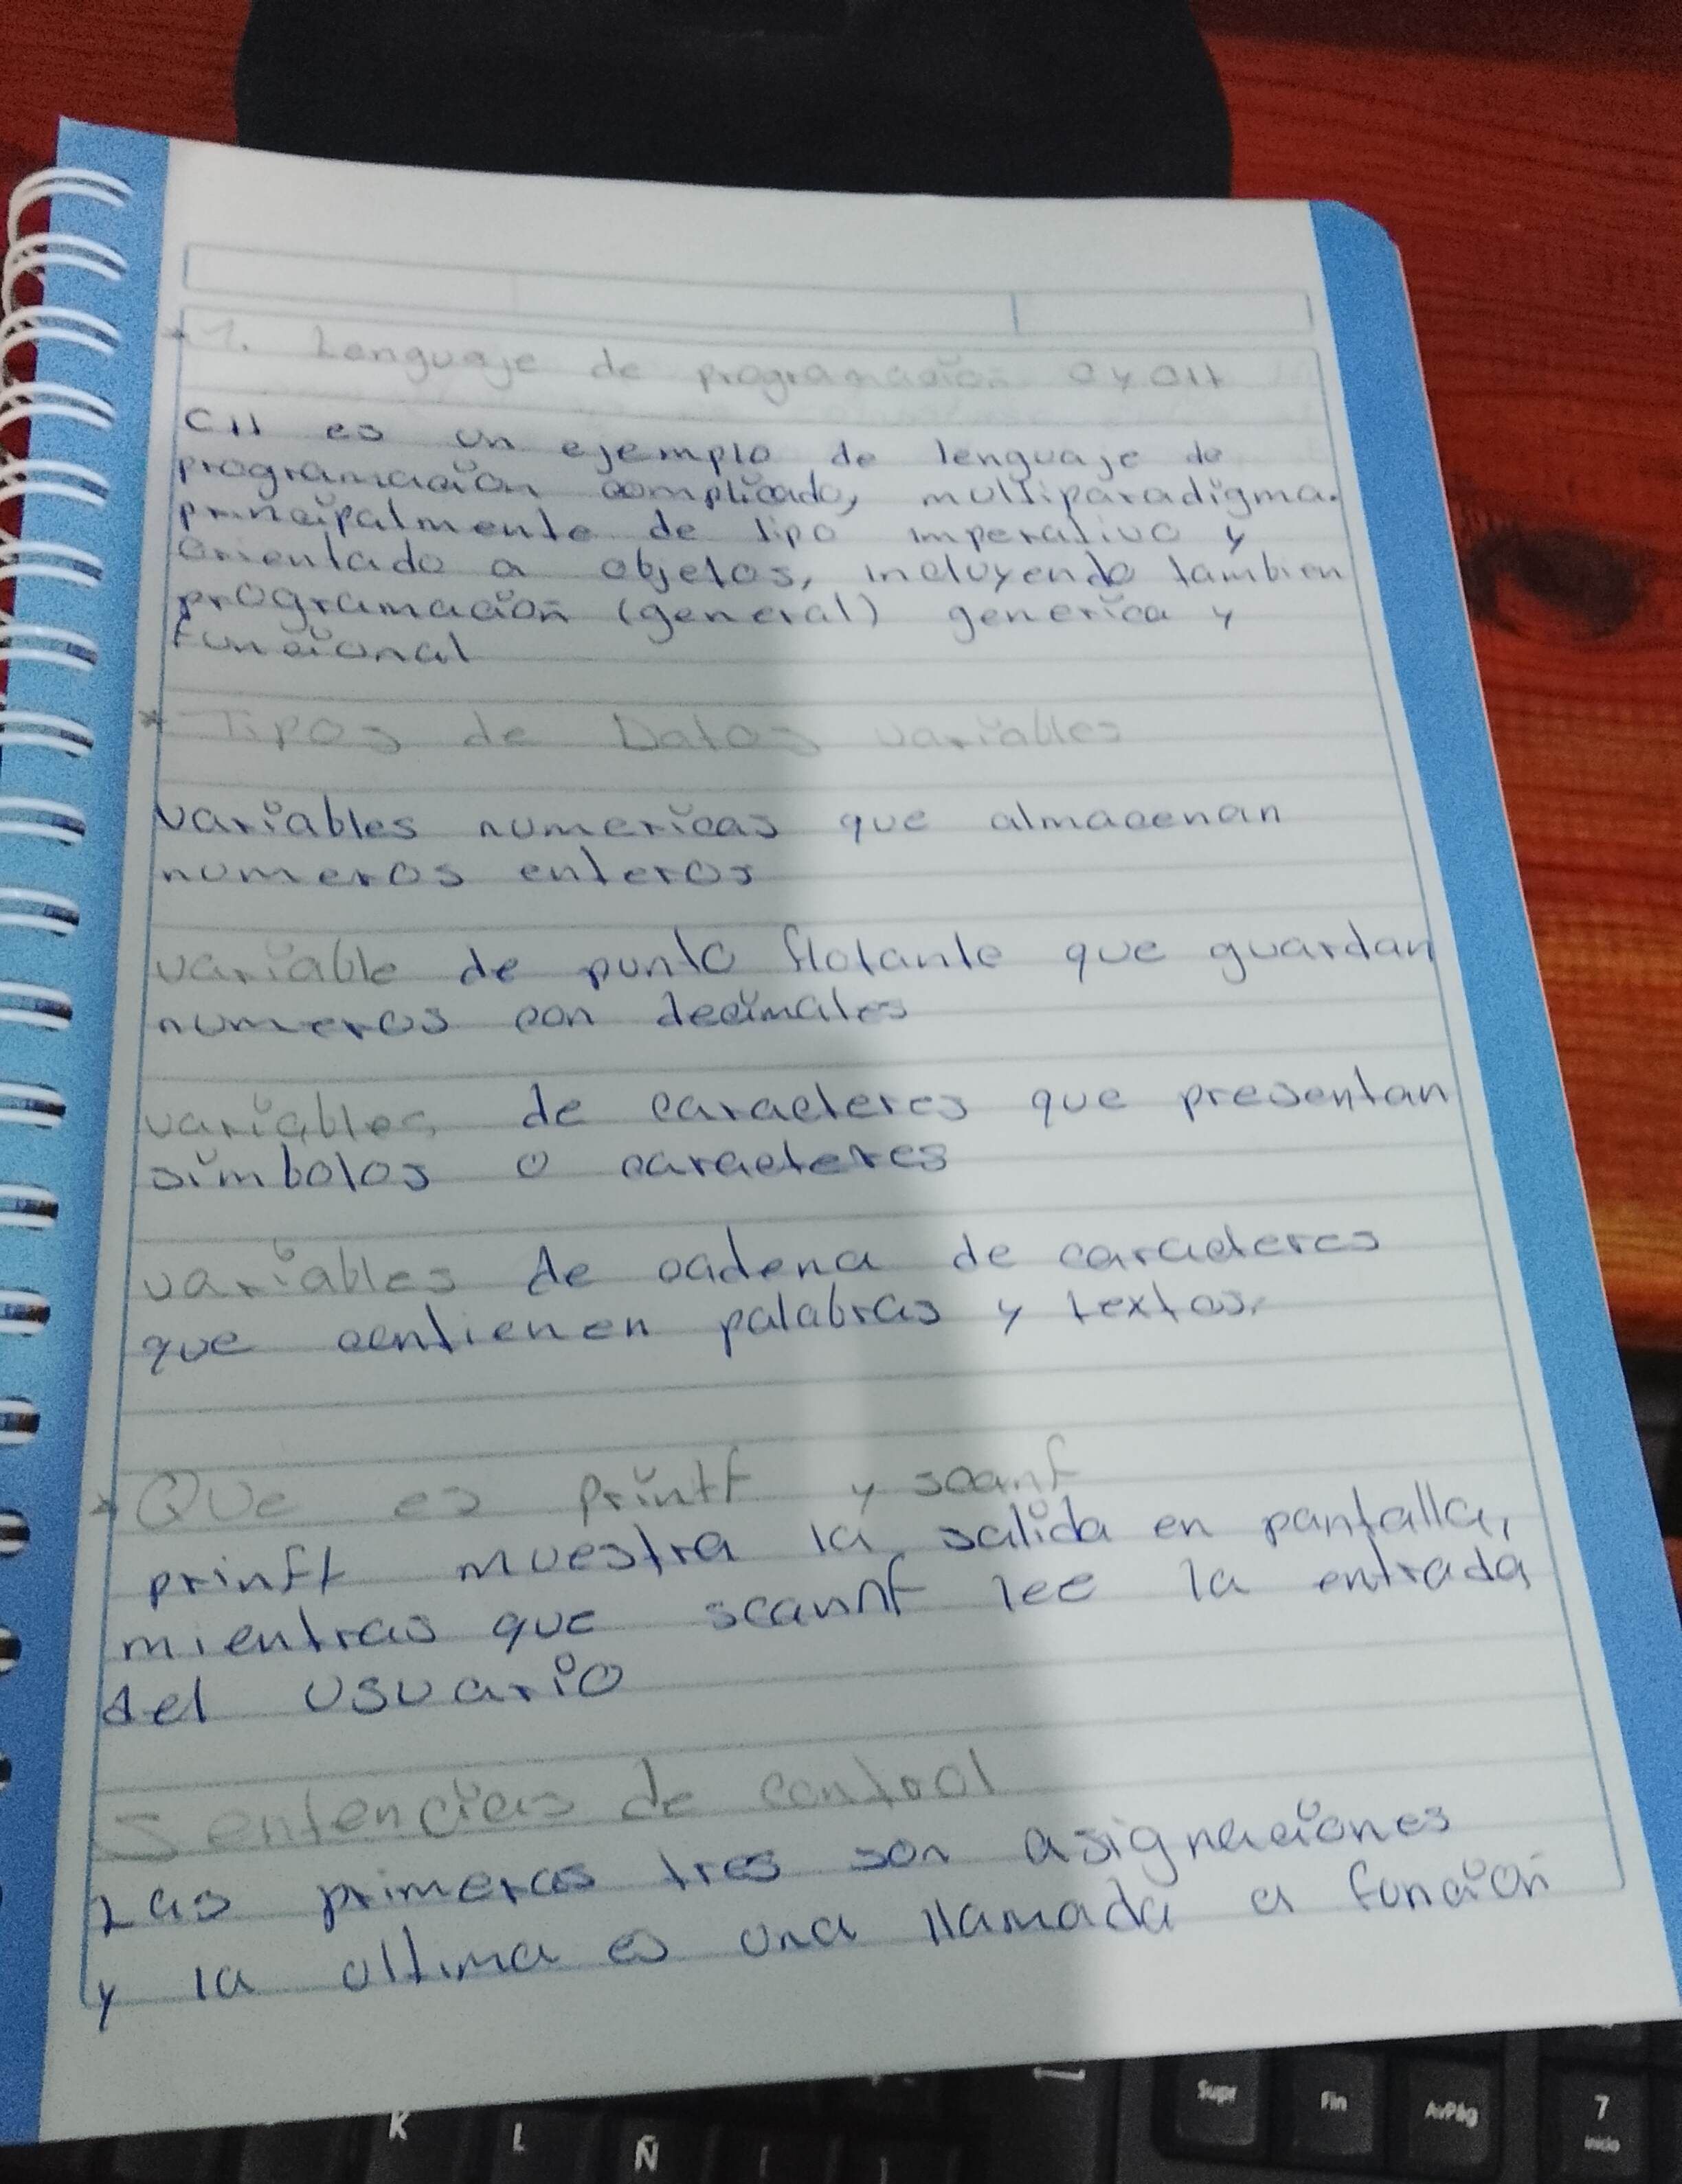 1. Lenguaje de programación C y C++
C++ es un ejemplo de lenguaje de
programación complicado, multiparadigma.
principalmente de tipo imperativo y
orientado a objetos, incluyendo tambien
programación (general) generica y
funcional
* Tipos de Datos variables
variables numericas que almacenan
numeros enteros
variable de punto flotante que guardan
numeros con decimales
variables de caracteres que presentan
simbolos o caracteres
variables de cadena de caracteres
que contienen palabras y textos.
* Que es printf y scanf
prinft muestra la salida en pantalla,
mientras que scannf lee la entrada
del usuario
Sentencias de control
Las primeras tres son asignaciones
y la ultima es una llamada a función
K L Ñ
Supr Fin AvPág 7
Inicio